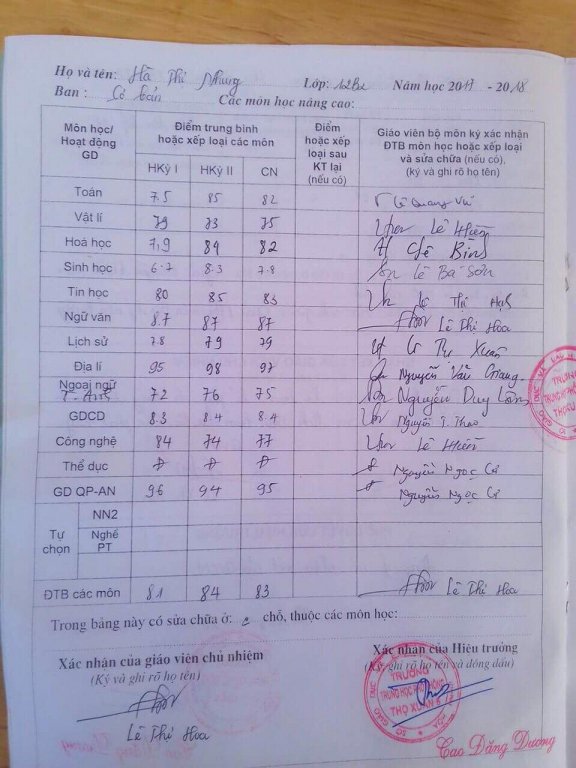 Họ và tên: Hà Thị Nhung Lớp: 12B2 Năm học 2017 - 2018
Ban: Cơ bản Các môn học nâng cao:
Môn học/ Hoạt động GD | Điểm trung bình hoặc xếp loại các môn | Điểm hoặc xếp loại sau KT lại (nếu có) | Giáo viên bộ môn ký xác nhận ĐTB môn học hoặc xếp loại và sửa chữa (nếu có), (ký và ghi rõ họ tên)
HKỳ I | HKỳ II | CN
Toán 7.5 85 82 Lê Quang Vũ
Vật lí 79 73 75 Lê Hiền
Hoá học 7,9 84 82 Lê Bình
Sinh học 6.7 8.3 7.8 Lê Bá Sơn
Tin học 80 85 83 Lê Thị Hạnh
Ngữ văn 8.7 87 87 Lê Thị Hoa
Lịch sử 7.8 79 79 Xuân
Địa lí 95 98 97 Nguyễn Văn Giang
Ngoại ngữ T. Anh 72 76 75 Nguyễn Duy Long
GDCD 8.3 8.4 8.4 Nguyễn T. Thảo
Công nghệ 84 74 77 Lê Hiền
Thể dục Đ Đ Đ Nguyễn Ngọc
GD QP-AN 96 94 95 Nguyễn Ngọc
Tự chọn
NN2
Nghề PT
ĐTB các môn 81 84 83 Lê Thị Hoa
Trong bảng này có sửa chữa ở: chỗ, thuộc các môn học:
Xác nhận của giáo viên chủ nhiệm
(Ký và ghi rõ họ tên)
Lê Thị Hoa
Xác nhận của Hiệu trưởng
(Ký, ghi rõ họ tên và đóng dấu)
TRƯỜNG
TRUNG HỌC PHỔ THÔNG
THỌ XUÂN
Cao Đăng Dương
TRƯỜNG
THỌ XUÂN